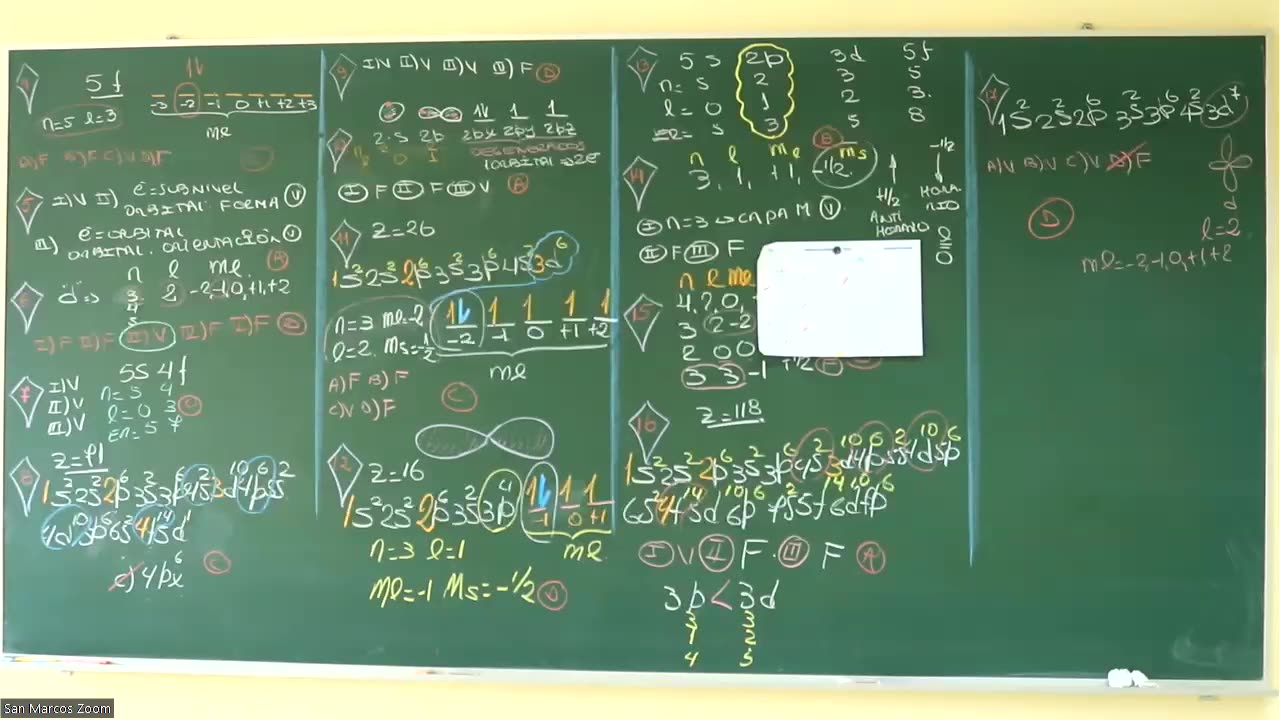 5f
1↓
-3 -2 -1 0 +1 +2 +3
n=5 l=3
ml
A)F B)F C)V D)F
5
I)V II) e=SUBNIVEL
ORBITAL FORMA V
III) e=ORBITAL
ORBITAL ORIENTACIÓN V
A
6
n l ml
d⇒ 3 2 -2,-1,0,+1,+2
4
5
I)F II)F III)V IV)F V)F D
7
5S 4f
I)V n=5 4
II)V l=0 3
III)V En=5 7
8
Z=71
1S² 2S² 2p⁶ 3S² 3p⁶ 4S² 3d¹⁰ 4p⁶ 5S²
4d¹⁰ 5p⁶ 6S² 4f¹⁴ 5d¹
c) 4px⁶
C
9
I)V II)V III)V IV)F D
1↓ 1 1
2S 2p 2px 2py 2pz
0 1 DEGENERADOS
1 ORBITAL ⇒ 2e⁻
I F II F III V A
11
Z=26
1S² 2S² 2p⁶ 3S² 3p⁶ 4S² 3d⁶
n=3 ml=-2
l=2 Ms=-1/2
1↓ 1 1 1 1
-2 -1 0 +1 +2
ml
A)F B)F
C)V D)F
C
12
Z=16
1S² 2S² 2p⁶ 3S² 3p⁴
1↓ 1 1
-1 0 +1
ml
n=3 l=1
Ml=-1 Ms=-1/2 D
13
5s 2p 3d 5f
n= 5 2 3 5
l= 0 1 2 3
5 3 5 8
B
14
n l ml ms
3, 1, +1, -1/2
+1/2 ANTI HORARIO
-1/2 HORARIO
I n=3 CAPA M V
II F III F
15
n l ml
4, ?, 0,
3 2 -2
2 0 0
3 3 -1 +1/2 F
16
Z=118
1S² 2S² 2p⁶ 3S² 3p⁶ 4S² 3d¹⁰ 4p⁶ 5S² 4d¹⁰ 5p⁶
6S² 4f¹⁴ 5d¹⁰ 6p⁶ 7S² 5f¹⁴ 6d¹⁰ 7p⁶
I V II F III F A
3p < 3d
3 3
1 2
4 5
1S² 2S² 2p⁶ 3S² 3p⁶ 4S² 3d⁷
A)V B)V C)V D)F
D
d
l=2
ml=-2,-1,0,+1+2
San Marcos Zoom